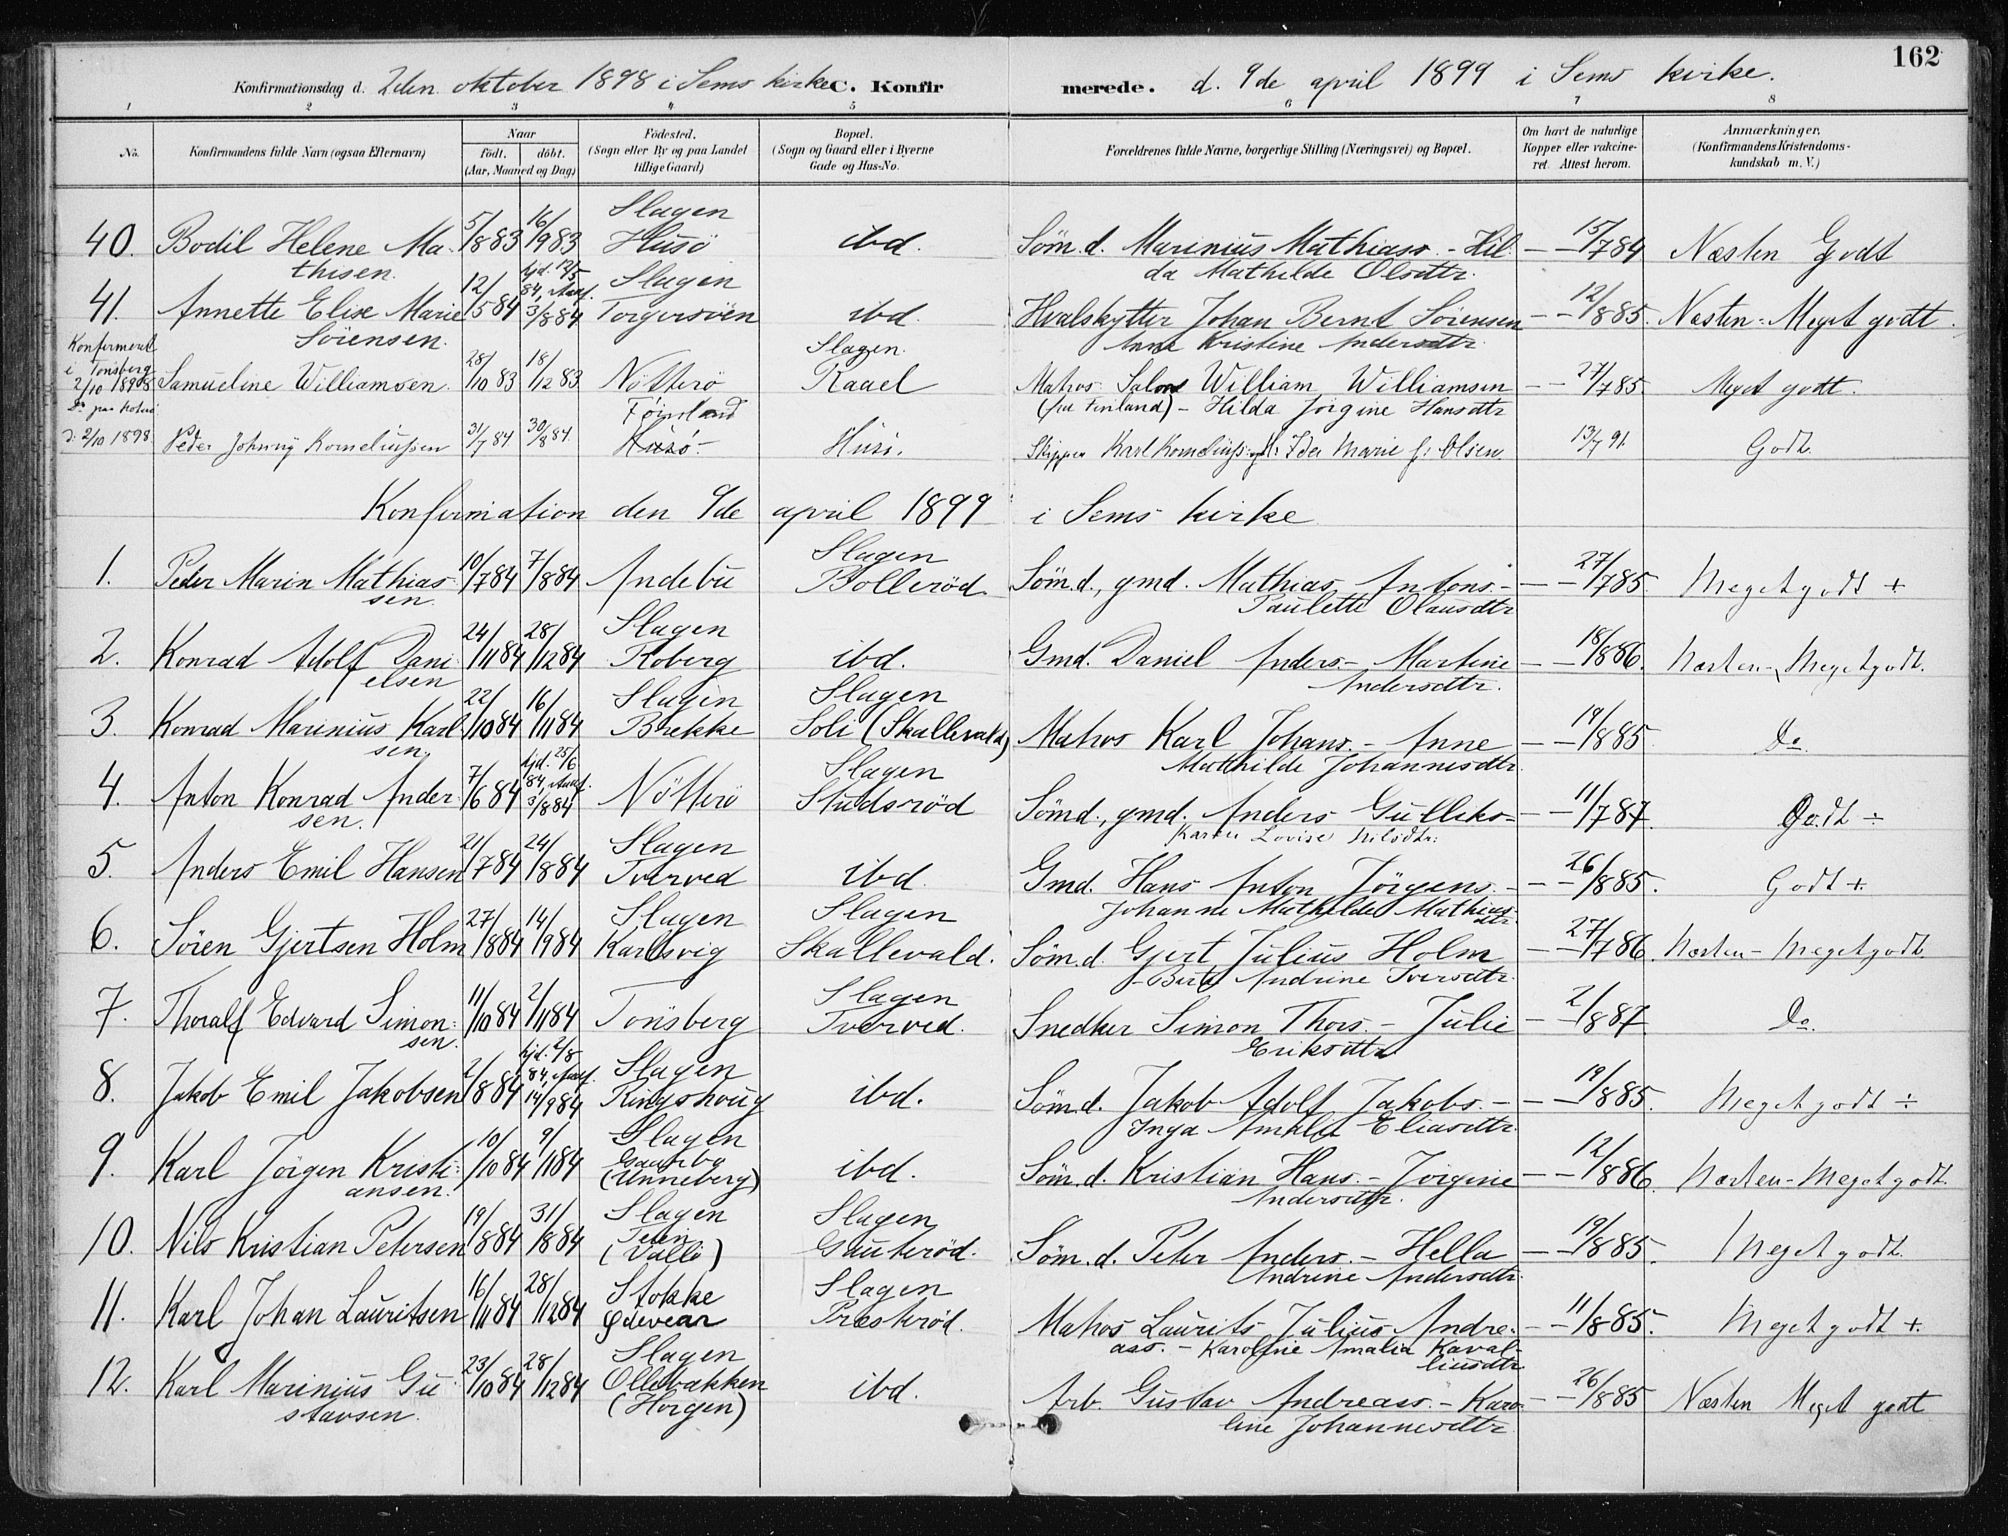 162
Konfirmationsdag d. 2den oktober 1898 i Sems kirke C. Konfir merede. d. 9de april 1899 i Sems kirke.
1 2 3 4 5 6 7 8
No. Konfirmandens fulde Navn (ogsaa Efternavn) Naar født. døbt. (Aar, Maaned og Dag) Fødested. (Sogn eller By og paa Landet tillige Gaard) Bopæl. (Sogn og Gaard eller i Byerne Gade og Hus-No. Forældrenes fulde Navne, borgerlige Stilling (Næringsvei) og Bopæl. Om havt de naturlige Kopper eller vakcineret. Attest herom. Anmærkninger. (Konfirmandens Kristendomskundskab m. V.)
Slagen
40. Bodil Helene Ma- 5/8 83 16/9 83 Husö ibd. Söm.d. Marinius Mathiass. - Hil- — — 15/7 84 Næsten Godt
thisen. da Mathilde Olsdtr.
hjd. 12/5 Slagen
41. Annette Elise Marie 12/5 84 84, Amf. 3/8 84 Torgersöen ibd Hvalskytter Johan Bernt Sörensen — — 12/8 85. Næsten-Meget godt.
Sörensen. Anne Kristine Andersdtr.
Konfirmeret i Tönsberg 2/10 1898 Samueline Williamsen. 28/10 83 18/12 83 Nötterö Slagen. Raael Matros William Williamsen — — 27/7 85. Meget godt.
(fra Finland) - Hilda Jörgine Hansdtr
Do paa d. 2/10 1898. Peder Johnny Korneliussen 31/7 84 30/8 84. Föinland Husö. Husö. Skipper Karl Korneliuss. Ida Marie f: Olsen. 13/7 91. Godt.
Konfirmation den 9de april 1899 i Sems kirke
Slagen
1. Peder Marin Mathias- 10/7 84 7/8 84 Andebu Bolleröd. Söm.d., gmd. Mathias Antons.- — — 27/7 85. Meget godt +
sen. Paulette Olausdtr
Slagen
2. Konrad Adolf Dani- 24/11 84 28/12 84 Roberg ibd. Gmd. Daniel Anders.- Martine — — 18/8 86. Næsten-Meget godt.
elsen Andersdtr.
Slagen Slagen
3. Konrad Marinius Karl- 22/10 84 16/11 84 Brekke Soli (Skallevald) Matros Karl Johans. - Anne — — 19/8 85. Do
sen. Mathilde Johannesdtr.
hjd. 25/6 Slagen
4. Anton Konrad Ander- 7/6 84 84, Amf. 3/8 84 Nötterö Studsröd Sömd., gmd. Anders Gulliks- — — 11/7 87. Godt ÷
sen. Karen Lovise Nilsdtr.
Slagen
5. Anders Emil Hansen 21/7 84 24/8 84 Tverved ibd Gmd. Hans Anton Jörgens. - — — 26/8 85. Godt +
Johanne Mathilde Mathiasdtr.
Slagen Slagen
6. Sören Gjertsen Holm 27/8 84 14/9 84 Karlsvig Skallevald. Söm.d. Gjert Julius Holm — — 27/7 86. Næsten-Meget godt.
- Berte Andrine Iversdtr.
Slagen
7. Thoralf Edvard Simon- 11/10 84 2/11 84 Tönsberg Tverved. Snedker Simon Thors. - Julie — — 2/8 87. Do.
sen. Eriksdtr
hjd. 2/8 Slagen
8. Jakob Emil Jakobsen 2/8 84 84, Amf. 14/9 84 Ringshoug ibd. Söm.d. Jakob Adolf Jakobs. - — — 19/8 85. Meget godt ÷
Inga Amalia Eliasdtr.
Slagen
9. Karl Jörgen Kristi- 10/10 84 9/11 84 Gaarbo (Unneberg) ibd. Söm.d. Kristian Hans. - Jörgine — — 12/8 86. Næsten-Meget godt.
ansen. Andersdtr.
Slagen Slagen
10. Nils Kristian Petersen 19/8 84 31/8 84 Teien (Valle) Gauteröd. Söm.d. Peter Anders. - Hella — — 19/8 85. Meget godt.
Andrine Andersdtr.
Slagen
11. Karl Johan Lauritsen 16/11 84 28/12 84 Stokke Ødevear Presteröd. Matros Laurits Julius Andre- — — 11/8 85. Meget godt +.
ass. - Karoline Amalia Kavalliusdtr.
Slagen
12. Karl Marinius Gu- 23/10 84 28/12 84 Ollebakken (Horgen) ibd. Arb. Gustav Andreass. - Karo- — — 26/8 85 Næsten Meget godt
stavsen. line Johannesdtr.